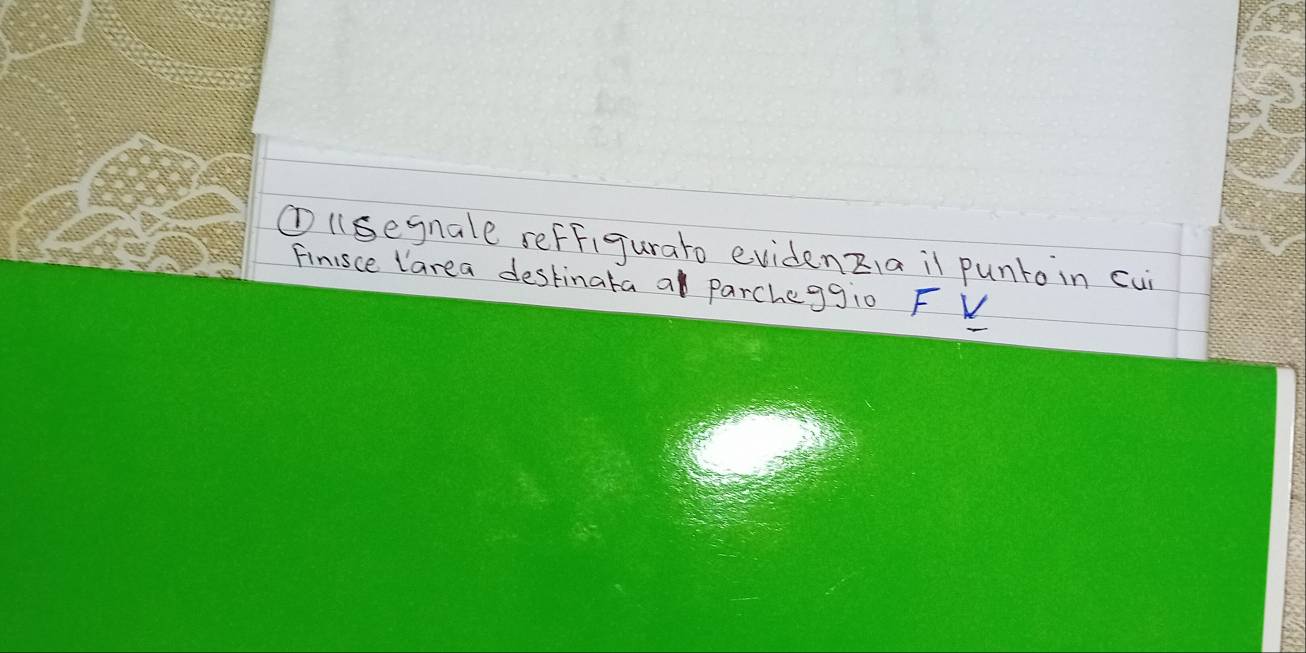 ① Il segnale reffigurato evidenzia il punto in cui
finisce l'area destinata al parcheggio F V